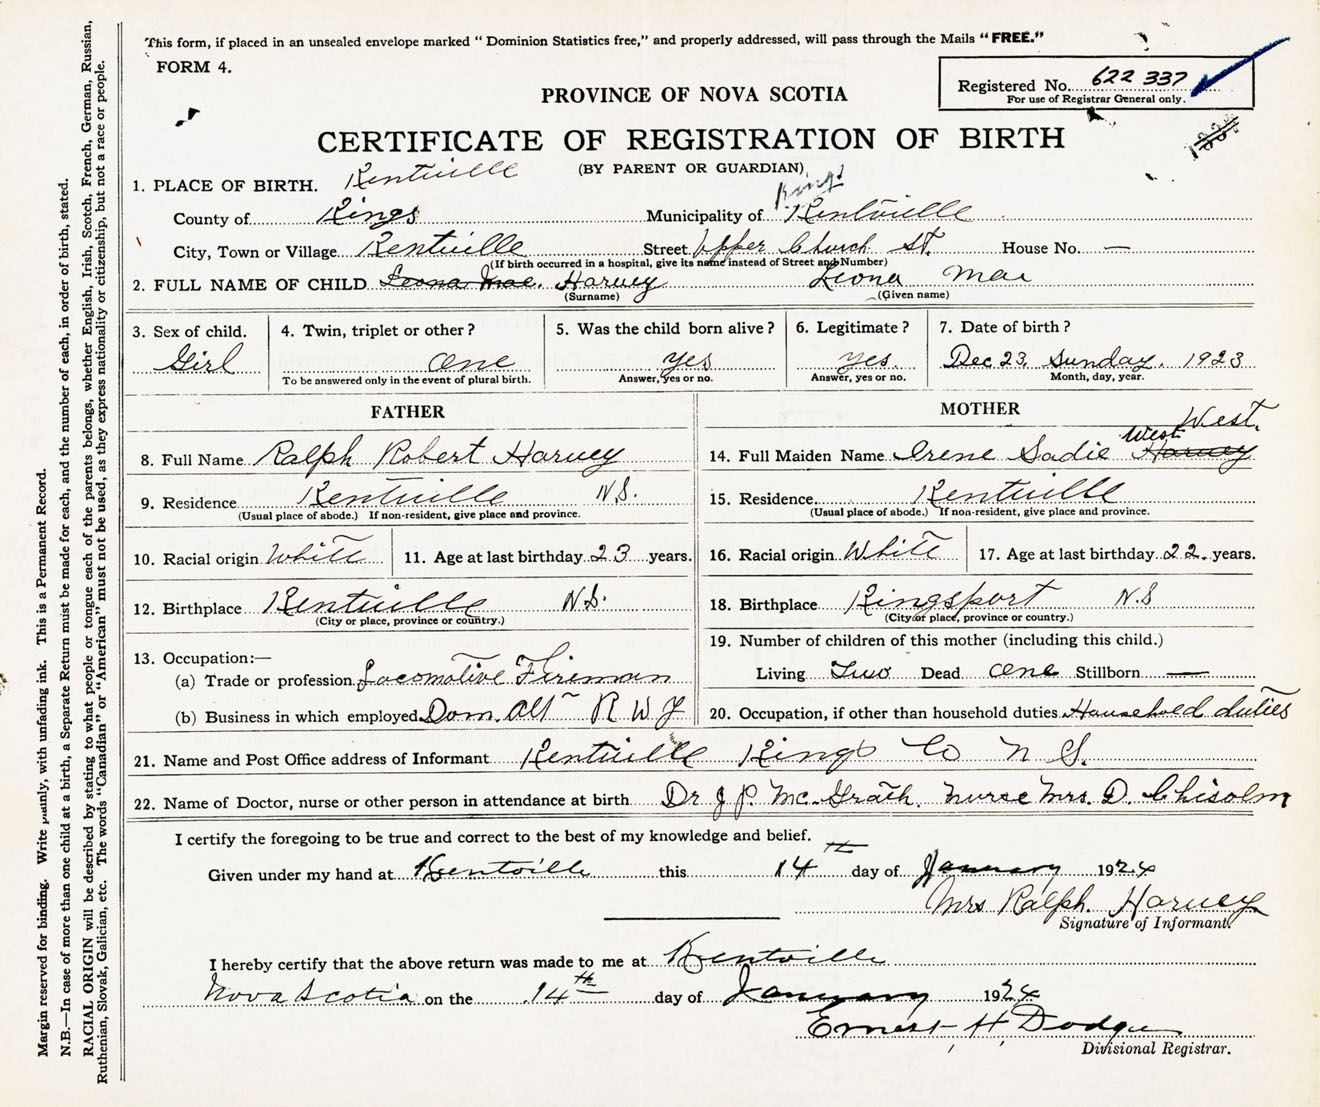 This form, if placed in an unsealed envelope marked “ Dominion Statistics free,” and properly addressed, will pass through the Mails “FREE.”
FORM 4.
Registered No. 622 337
For use of Registrar General only.
PROVINCE OF NOVA SCOTIA
CERTIFICATE OF REGISTRATION OF BIRTH
(BY PARENT OR GUARDIAN)
1. PLACE OF BIRTH. Kentville
Kings
County of Kings Municipality of Kentville
City, Town or Village Kentville Street Upper Church St. House No. —
(If birth occurred in a hospital, give its name instead of Street and Number)
2. FULL NAME OF CHILD Leona Mae. Harvey Leona Mae
(Surname) (Given name)
3. Sex of child. 4. Twin, triplet or other? 5. Was the child born alive? 6. Legitimate? 7. Date of birth?
Girl One yes yes. Dec 23 Sunday. 1923
To be answered only in the event of plural birth. Answer, yes or no. Answer, yes or no. Month, day, year.
FATHER
8. Full Name Ralph Robert Harvey
9. Residence Kentville N.S.
(Usual place of abode.) If non-resident, give place and province.
10. Racial origin White 11. Age at last birthday 23 years.
12. Birthplace Kentville N.S.
(City or place, province or country.)
13. Occupation:—
(a) Trade or profession Locomotive Fireman
(b) Business in which employed Dom. Atl R W Y
MOTHER
West.
West
14. Full Maiden Name Irene Sadie Harvey
15. Residence Kentville
(Usual place of abode.) If non-resident, give place and province.
16. Racial origin White 17. Age at last birthday 22. years.
18. Birthplace Kingsport N.S
(City or place, province or country.)
19. Number of children of this mother (including this child.)
Living Two Dead One Stillborn —
20. Occupation, if other than household duties Household duties
21. Name and Post Office address of Informant Kentville Kings Co N S.
22. Name of Doctor, nurse or other person in attendance at birth Dr J P. McGrath. Nurse Mrs. D. Chisolm
I certify the foregoing to be true and correct to the best of my knowledge and belief.
Given under my hand at Kentville this 14th day of January 1924
Mrs Ralph. Harvey
Signature of Informant.
I hereby certify that the above return was made to me at Kentville
Nova Scotia on the 14th day of January 1924
Ernest H Dodge
Divisional Registrar.
Margin reserved for binding. Write plainly, with unfading ink. This is a Permanent Record.
N.B.—In case of more than one child at a birth, a Separate Return must be made for each, and the number of each, in order of birth, stated.
RACIAL ORIGIN will be described by stating to what people or tongue each of the parents belongs, whether English, Irish, Scotch, French, German, Russian,
Ruthenian, Slovak, Galician, etc. The words “Canadian” or “American” must not be used, as they express nationality or citizenship, but not a race or people.